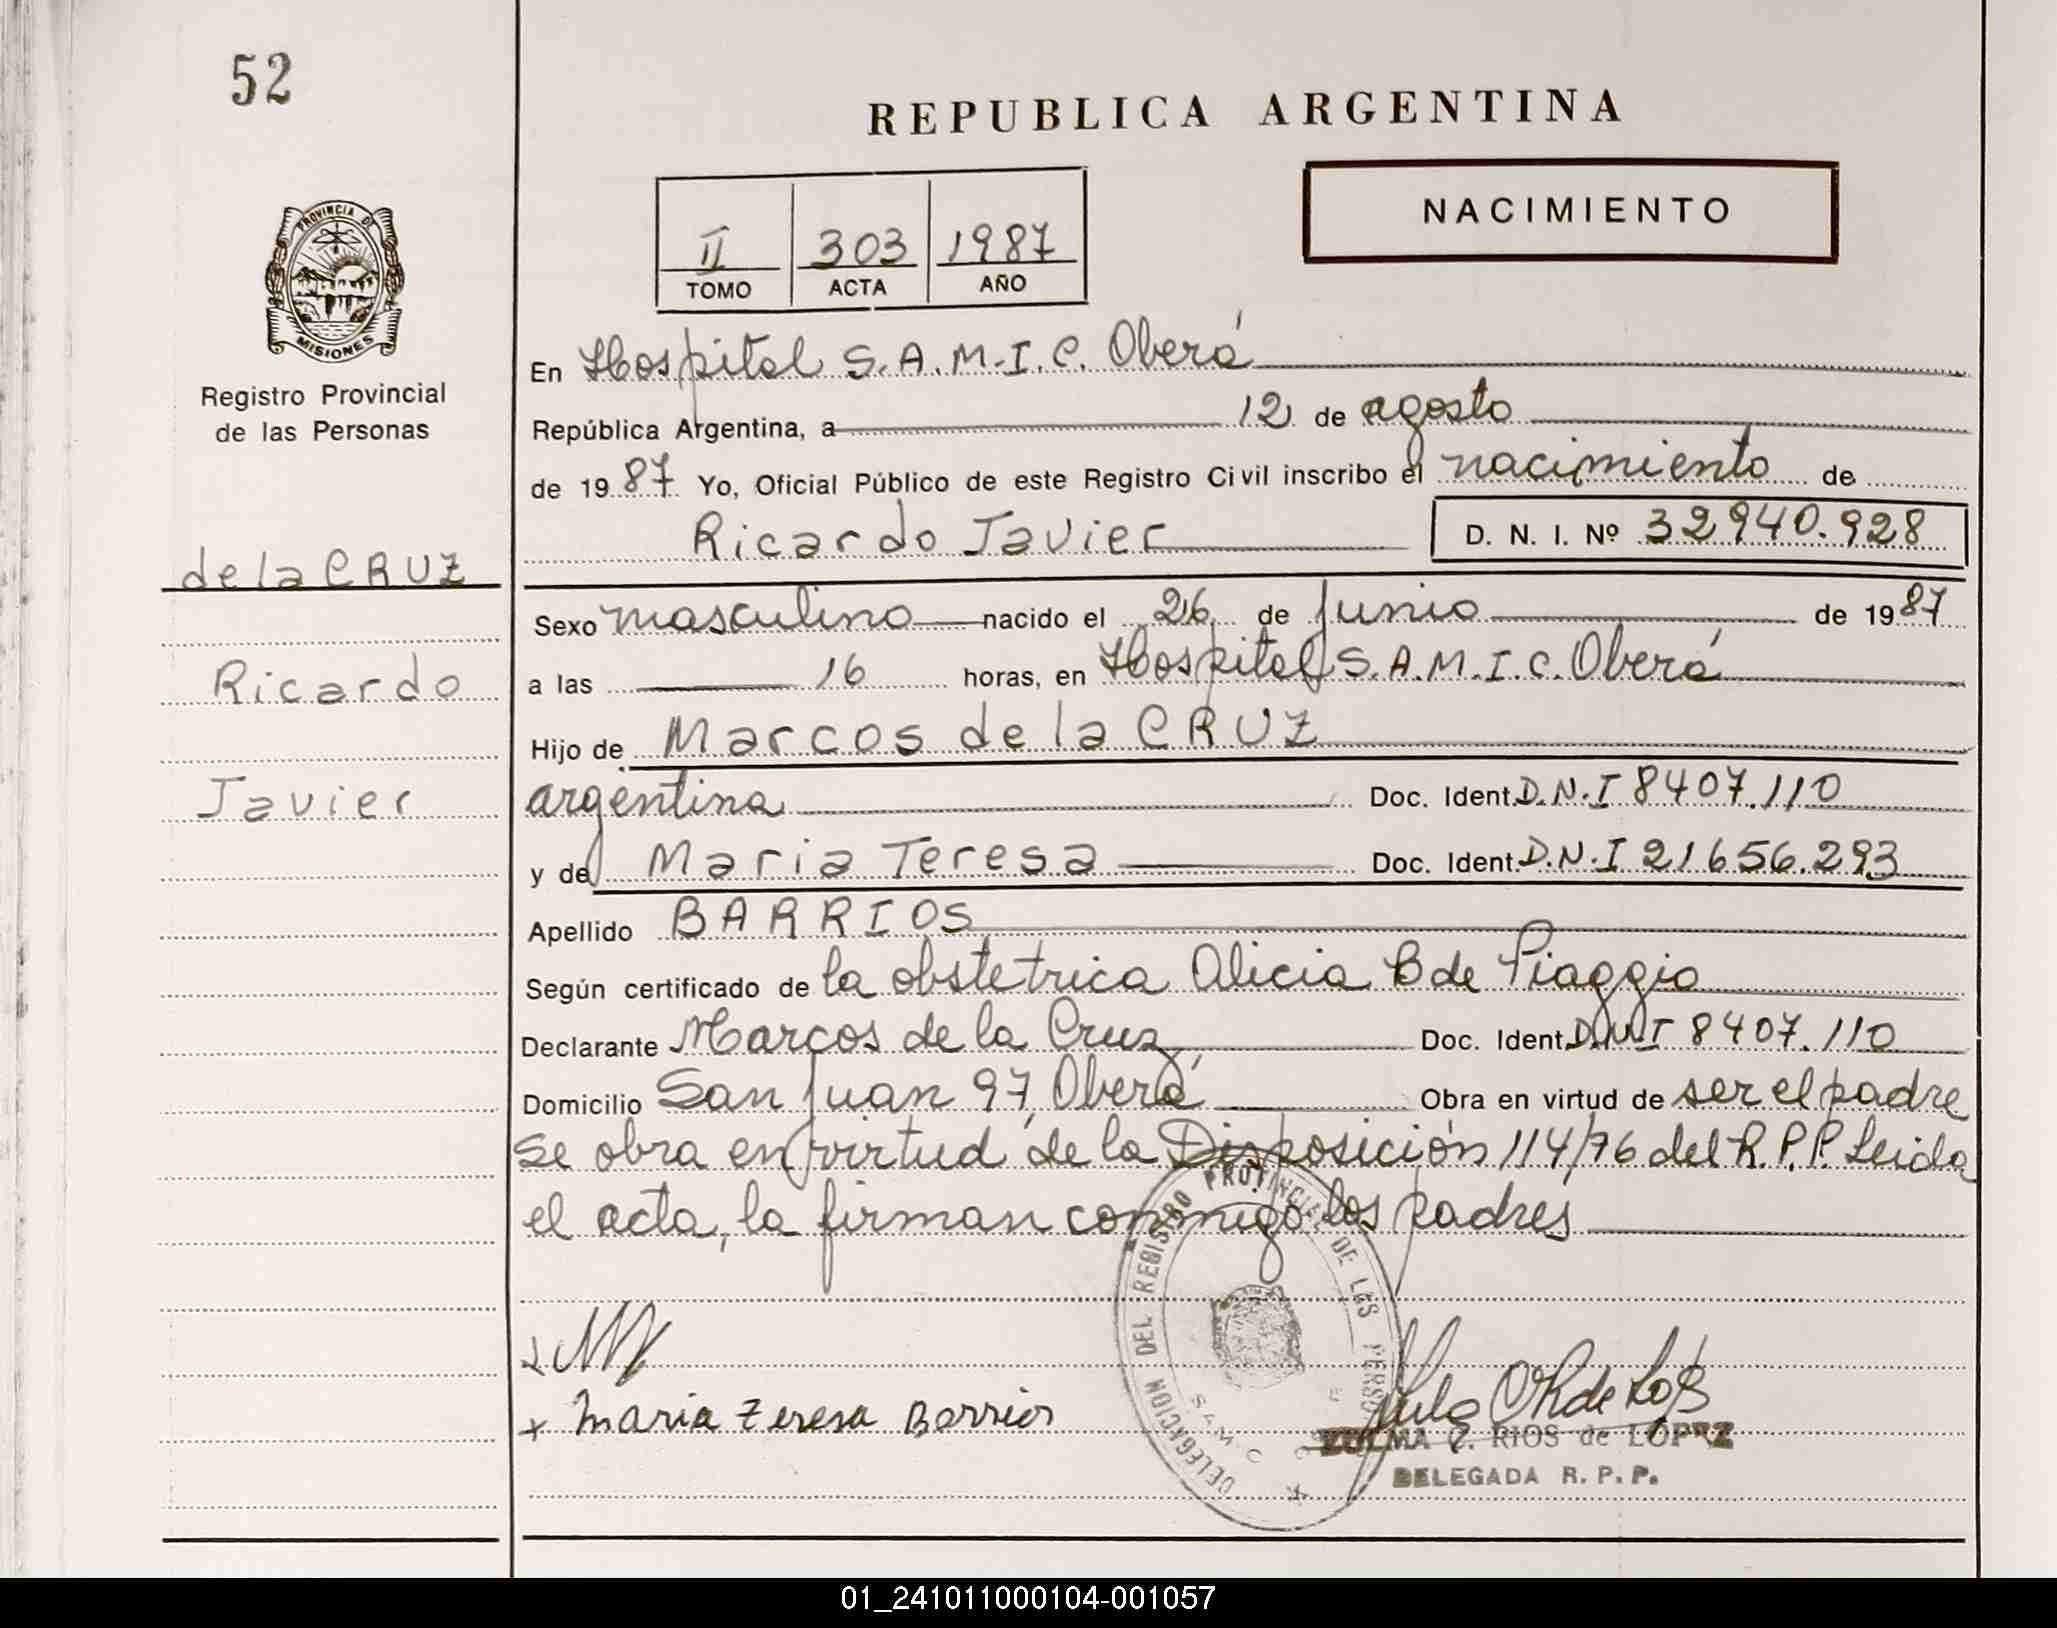 52
REPUBLICA ARGENTINA
NACIMIENTO
II 303 1987
TOMO ACTA AÑO
PROVINCIA DE
MISIONES
Registro Provincial
de las Personas
de la CRUZ
Ricardo
Javier
En Hospital S.A.M.I.C. Oberá
República Argentina, a 12 de agosto
de 1987 Yo, Oficial Público de este Registro Civil inscribo el nacimiento de
Ricardo Javier D. N. I. Nº 32940.928
Sexo masculino nacido el 26 de junio de 1987
a las 16 horas, en Hospital S.A.M.I.C. Oberá
Hijo de Marcos de la CRUZ
argentina Doc. Ident. D.N.I 8407.110
y de Maria Teresa Doc. Ident. D.N.I 21656.293
Apellido BARRIOS
Según certificado de la obstetrica Alicia B de Piaggio
Declarante Marcos de la Cruz Doc. Ident. D.N.I 8407.110
Domicilio San Juan 97, Oberá Obra en virtud de ser el padre
se obra en virtud de la Disposición 114/76 del R.P.P. Leida
el acta, la firman conmigo los padres
x Maria Teresa Barrios
DELEGACION DEL REGISTRO PROVINCIAL DE LAS PERSONAS
S.A.M.I.C.
ZULMA C. RIOS de LOPEZ
DELEGADA R. P. P.
01_241011000104-001057